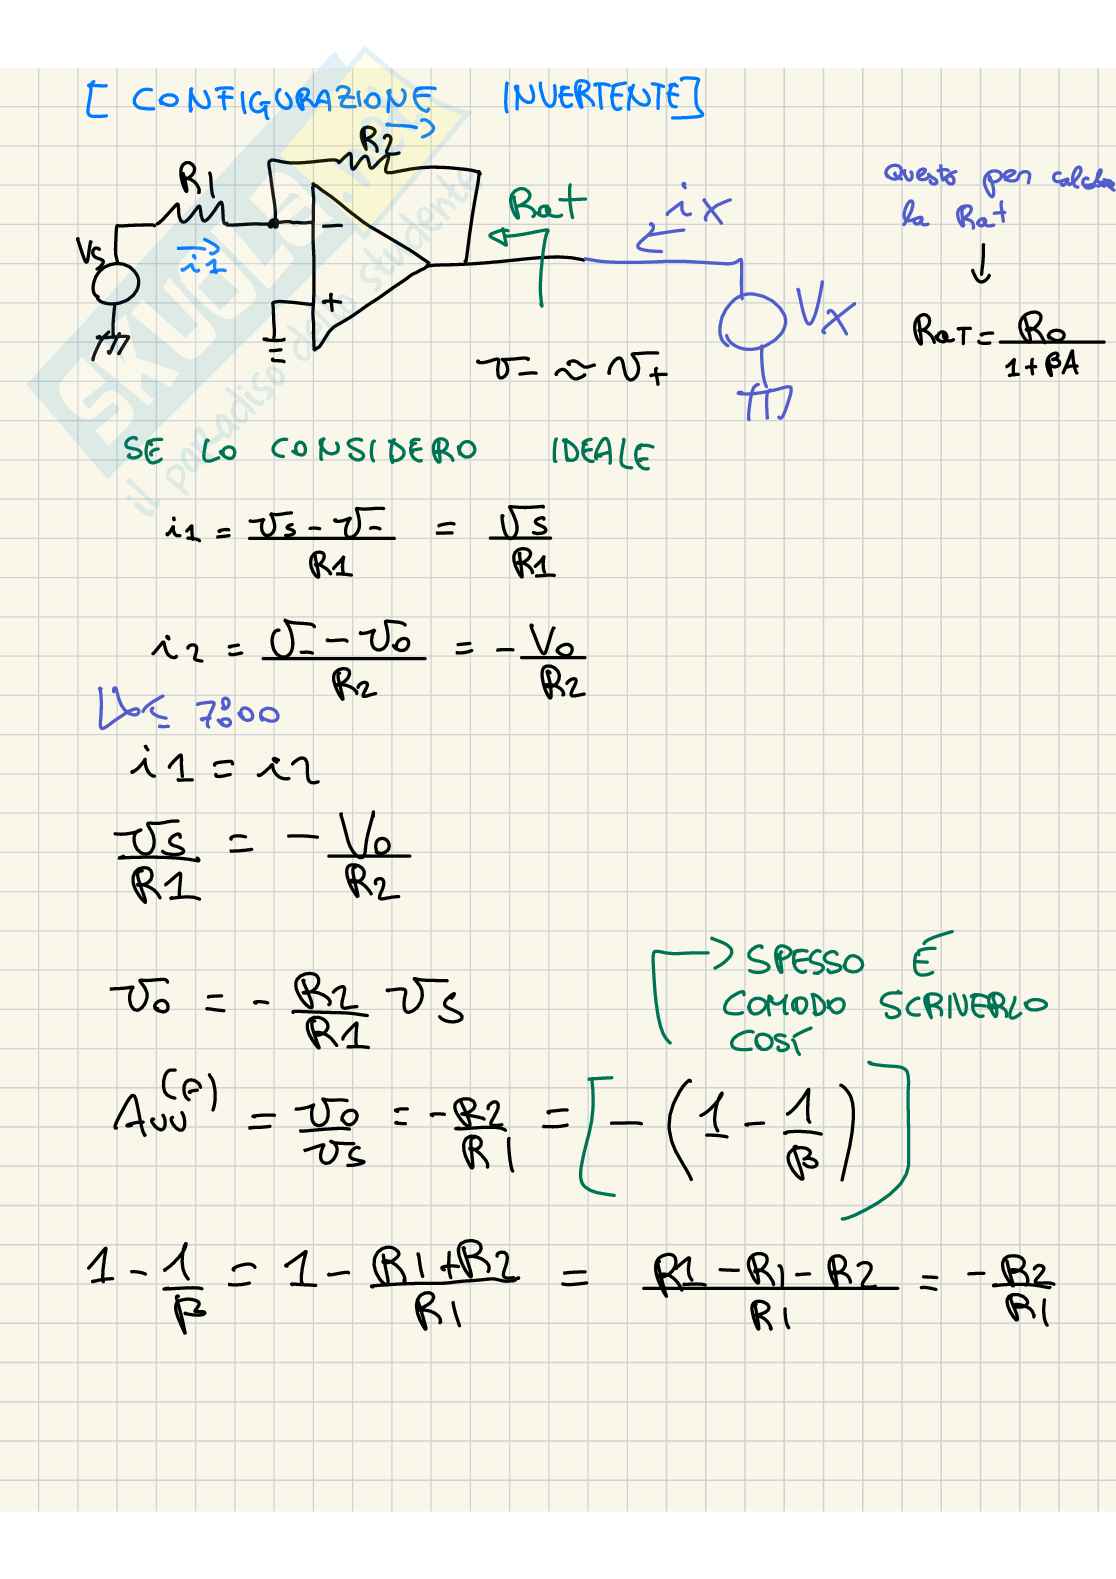 [ CONFIGURAZIONE INVERTENTE]
R2
R1
Rat
ix
Questo per calcolare
la Rat
Vs
i1
-
+
Vx
RaT = Ro / (1 + βA)
v- ≈ v+
SE LO CONSIDERO IDEALE
i1 = (vs - v-) / R1 = vs / R1
i2 = (v- - vo) / R2 = - Vo / R2
7:00
i1 = i2
vs / R1 = - Vo / R2
vo = - R2 / R1 vs
SPESSO É
COMODO SCRIVERLO
COSÍ
Avv = vo / vs = - R2 / R1 = [ - (1 - 1 / β) ]
1 - 1 / β = 1 - (R1 + R2) / R1 = (R1 - R1 - R2) / R1 = - R2 / R1
SKUOLA
il paradiso dello studente